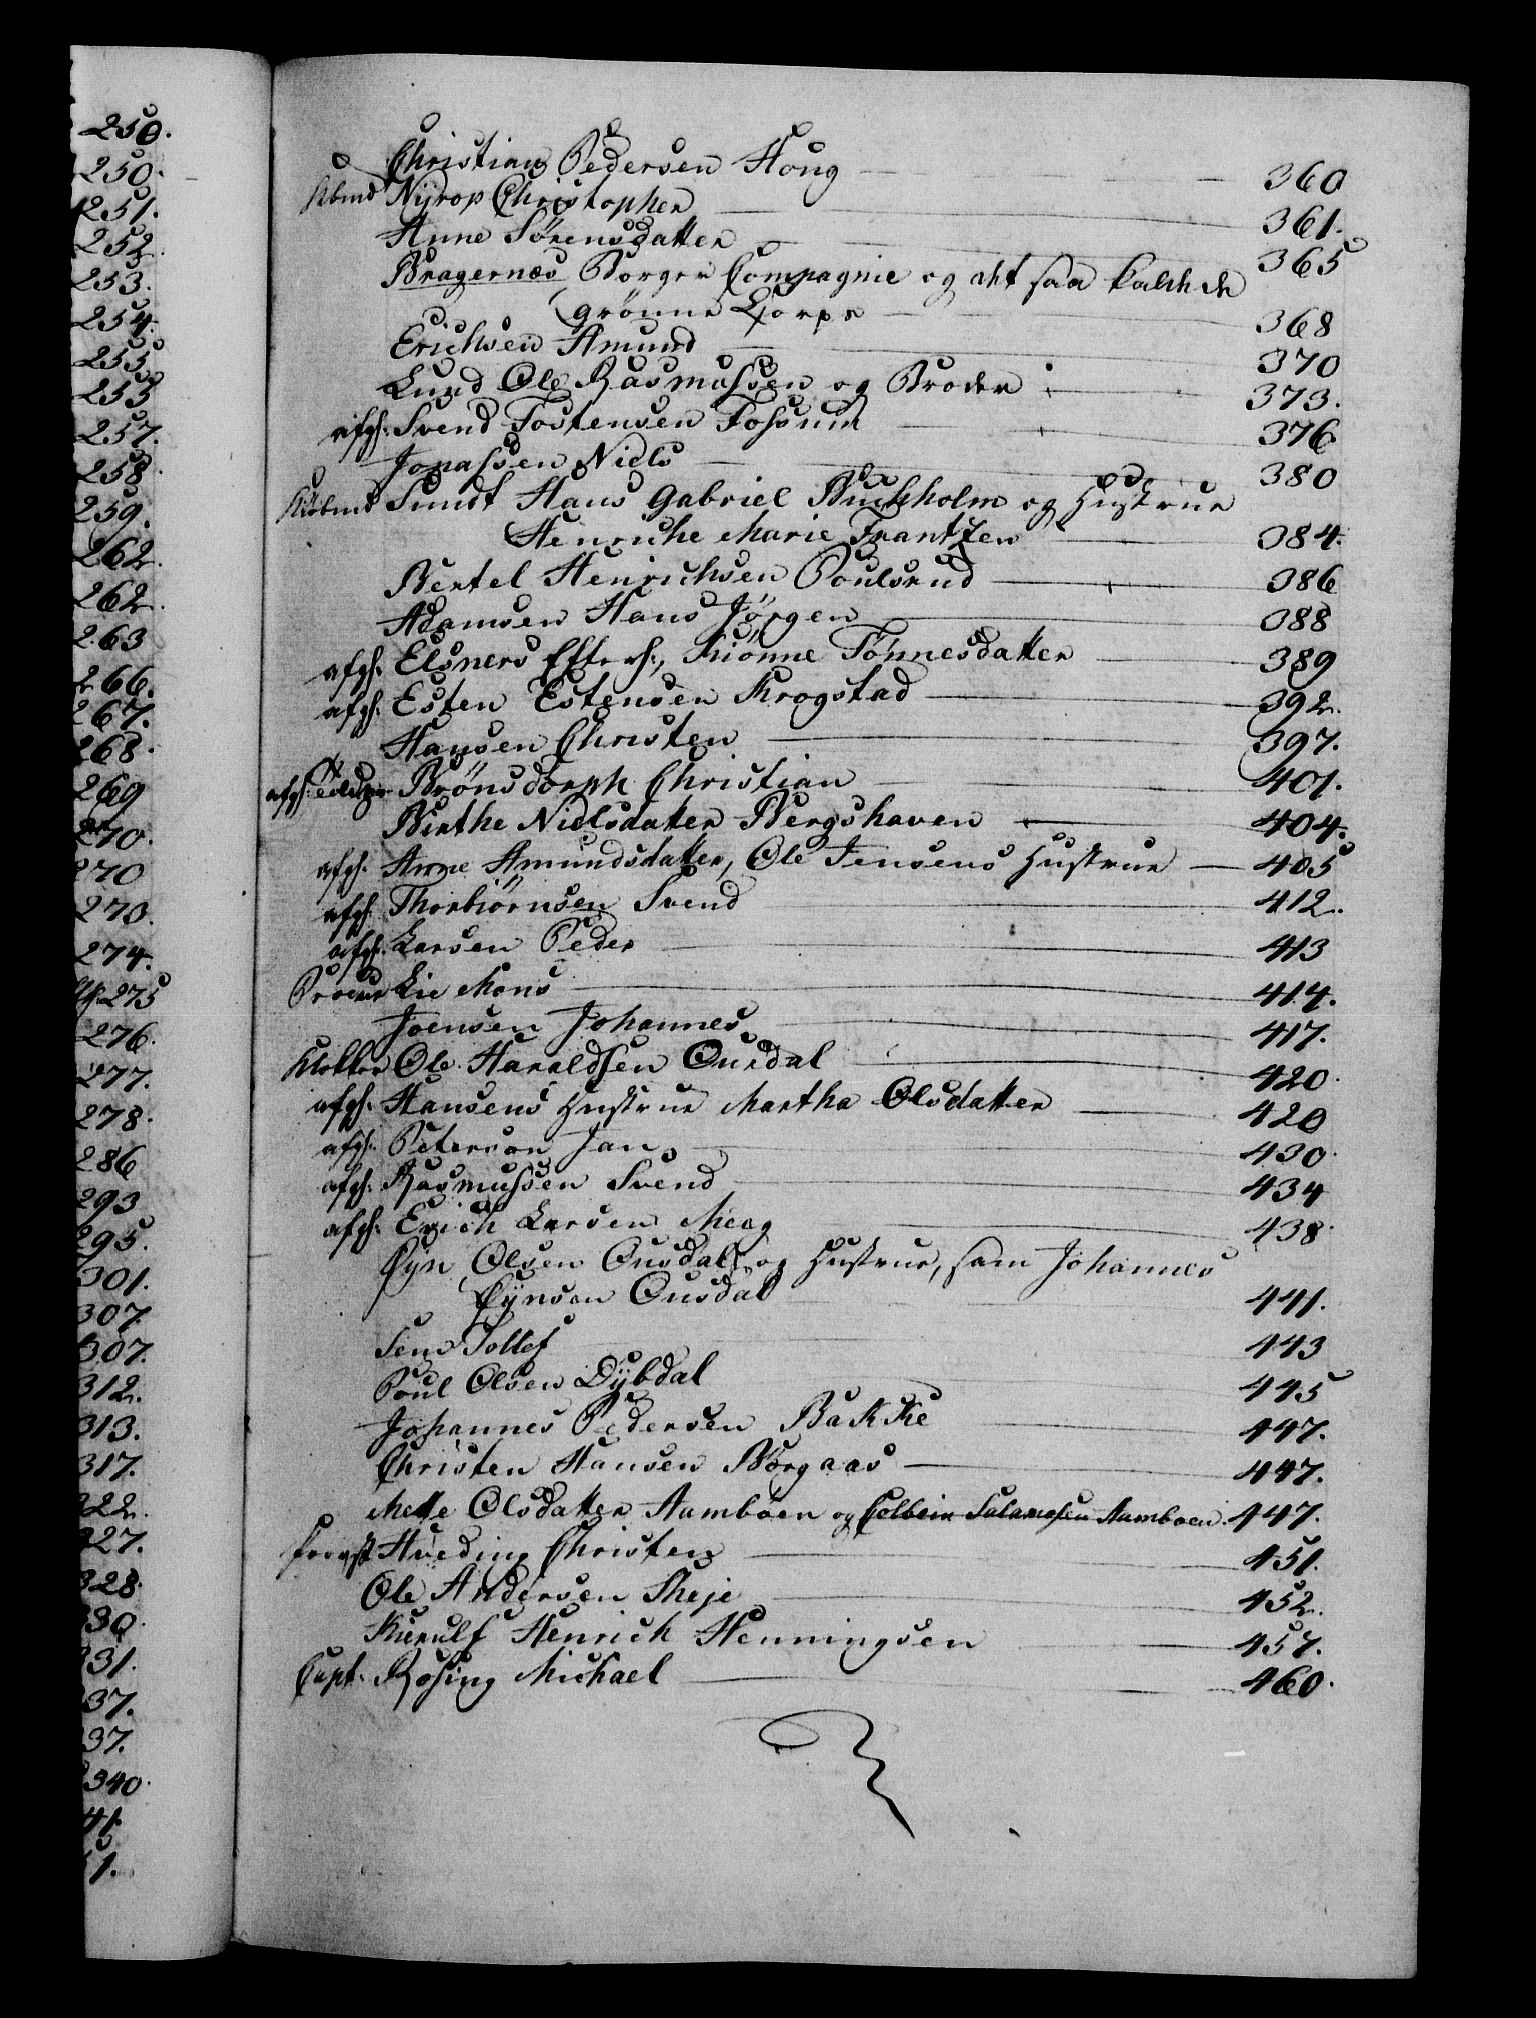 250.
250.
251.
252.
253.
254.
255
255
257.
258
259.
262.
262.
263
266.
267.
268.
269
270.
270
273.
274.
275
276.
277.
278.
286
293
295.
301.
307.
307.
312.
313.
317.
322.
327.
328.
330.
331.
337.
337.
340.
341.
351.
Christian Pedersen Houg 360
Kbmd Nÿrop Christopher 361.
Anne Sørensdatter 365
Bragernæs Borger Compagnie og det saa kaldede
grönne Corps 368
Erichsen Amund 370
Lund Ole Rasmussen og Broder 373.
afgl: Svend Tostensen Fossum 376
Jonassen Niels 380
Kiöbmd Sundt Hans Gabriel Buchholm og Hustrue
Henriche Marie Frantzen 384.
Bertel Henrichsen Poulsrud 386
Adamsen Hans Jörgen 388
afgl: Elsners Efterl:, Kiönne Tönnesdatter 389
afgl: Esten Estensen Krogstad 392.
Hansen Christen 397.
afgl: Brönsdorph Christian 401.
Birthe Nielsdatter Bergshaven 404.
afgl. Anne Amundsdatter, Ole Jensens Hustrue 405
afgl. Thorbiörnsen Svend 412.
afgl. Larsen Peder 413
Procur Lie Mons 414.
Joensen Johannes 417.
Klokker Ole Haraldsen Ourdal 420.
afgl. Hansens Hustrue Martha Olsdatter 420
afgl. Peterson Jan 430.
afgl. Rasmussen Svend 434
afgl: Erich Larsen Moog 438.
Eÿn Olsen Ousdal og Hustrue, sam Johannes
Eÿnsen Ousdal 441.
Sem Tollef 443
Poul Olsen Dÿbdal 445
Johannes Pedersen Bakke 447.
Christen Hansen Borgaas 447.
Mette Olsdatter Aamboen og Colbein Salamosen Aamboen. 447.
Provst Hveding Christen 451.
Ole Andersen Skeje 452.
Kierulf Henrich Henningsen 457.
Capt. Rosing Michael 460.